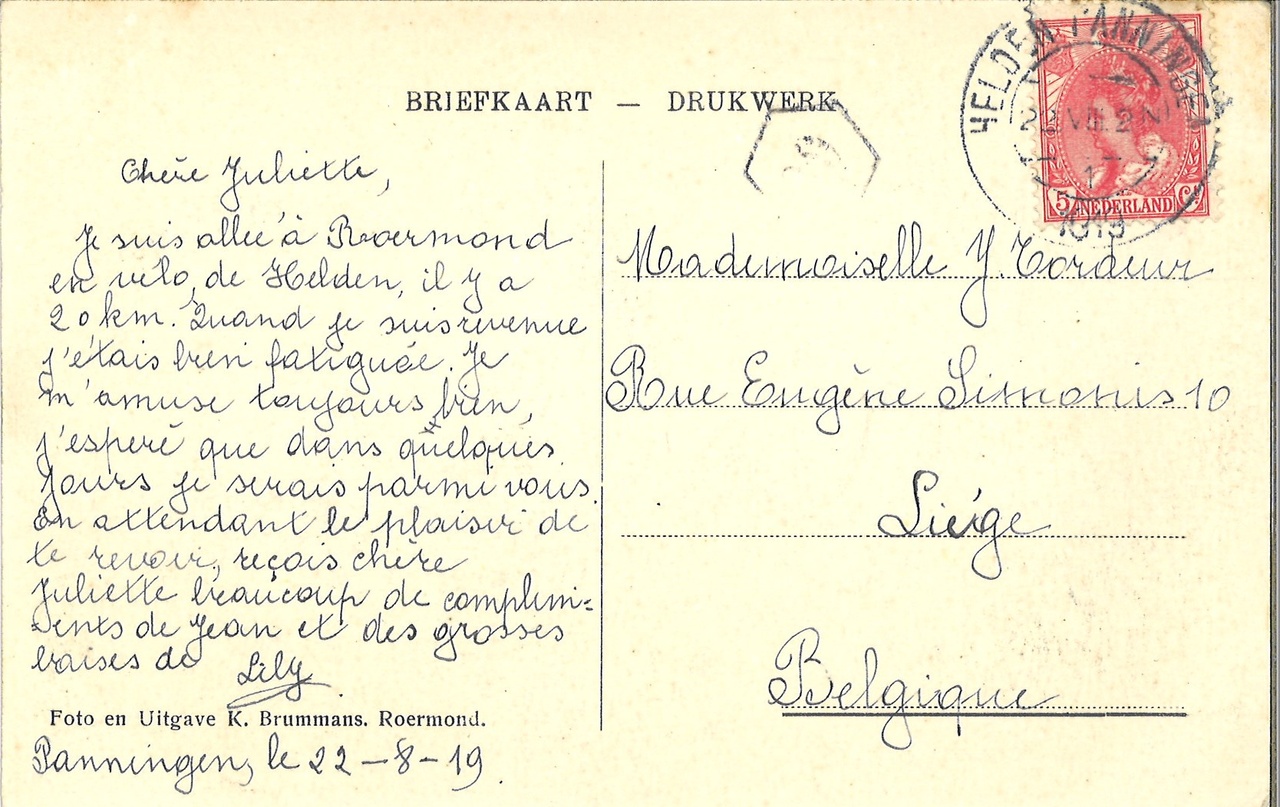 BRIEFKAART — DRUKWERK
Chère Juliette,
Je suis allée à Roermond
en vélo, de Helden, il y a
20 km. Quand je suis revenue
j'étais bien fatiguée. Je
m'amuse toujours bien,
j'esperè que dans quelques
jours je serais parmi vous.
En attendant le plaisir de
te revoir, reçois chère
Juliette beaucoup de complim=
-ents de Jean et des grosses
baises de Lily
Foto en Uitgave K. Brummans. Roermond.
Panningen, le 22-8-19.
HELDEN PANNINGEN
22 VIII 2 N
1919
5 NEDERLAND Ct
Mademoiselle Y. Tordeur
Rue Eugène Simonis 10
Liége
Belgique